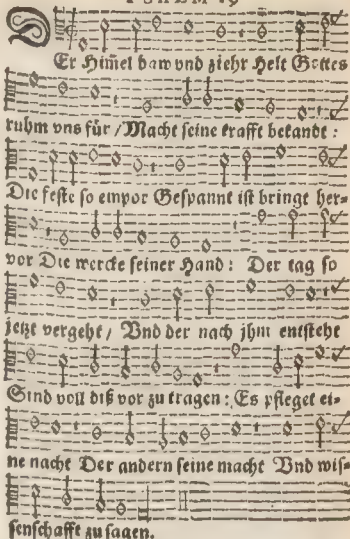 PSALM 19
DEr Himel baw vnd ziehr helt Gottes
ruhm vns für / Macht seine krafft bekandt :
Die feste so empor Gespannt ist bringt her-
vor Die wercke seiner Hand : Der tag so
jetzt vergeht / Vnd der nach jhm entsteht
Sind voll diß vor zu tragen : Es pfleget ei-
ne nacht Der andern seine macht Vnd wis-
senschafft zu sagen.